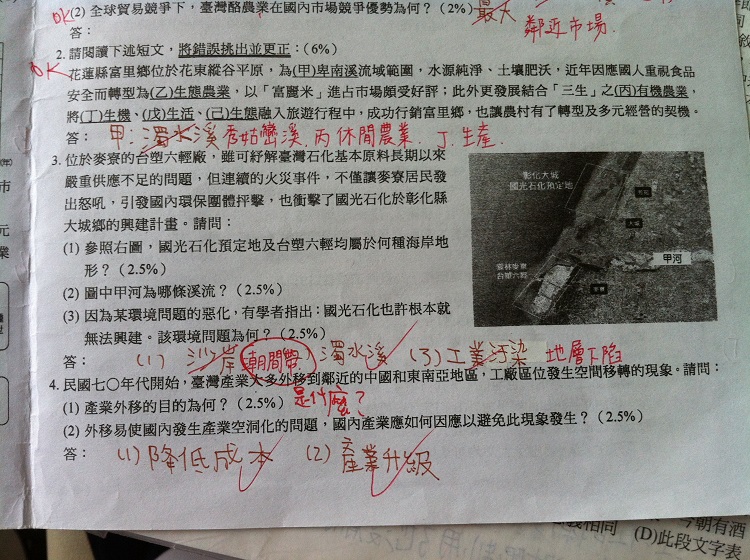 OK(2) 全球貿易競爭下，臺灣酪農業在國內市場競爭優勢為何？(2%) 最大
答： 鄰近市場.
2. 請閱讀下述短文，將錯誤挑出並更正：(6%)
OK 花蓮縣富里鄉位於花東縱谷平原，為(甲)卑南溪流域範圍，水源純淨、土壤肥沃，近年因應國人重視食品
安全而轉型為(乙)生態農業，以「富麗米」進占市場頗受好評；此外更發展結合「三生」之(丙)有機農業，
將(丁)生機、(戊)生活、(己)生態融入旅遊行程中，成功行銷富里鄉，也讓農村有了轉型及多元經營的契機。
答： 甲：濁水溪秀姑巒溪. 丙 休閒農業、丁. 生產.
3. 位於麥寮的台塑六輕廠，雖可紓解臺灣石化基本原料長期以來
嚴重供應不足的問題，但連續的火災事件，不僅讓麥寮居民發
出怒吼，引發國內環保團體抨擊，也衝擊了國光石化於彰化縣
大城鄉的興建計畫。請問：
(1) 參照右圖，國光石化預定地及台塑六輕均屬於何種海岸地
形？(2.5%)
(2) 圖中甲河為哪條溪流？(2.5%)
(3) 因為某環境問題的惡化，有學者指出：國光石化也許根本就
無法興建。該環境問題為何？(2.5%)
彰化大城
國光石化預定地
甲河
雲林麥寮
台塑六輕
答： (1) 沙岸 潮間帶 濁水溪 (3) 工業汙染 地層下陷
4. 民國七〇年代開始，臺灣產業大多外移到鄰近的中國和東南亞地區，工廠區位發生空間移轉的現象。請問：
(1) 產業外移的目的為何？(2.5%) 是什麼？
(2) 外移易使國內發生產業空洞化的問題，國內產業應如何因應以避免此現象發生？(2.5%)
答： (1) 降低成本 (2) 產業升級
市
元
業
相同 (D)此段文字表
今朝有酒